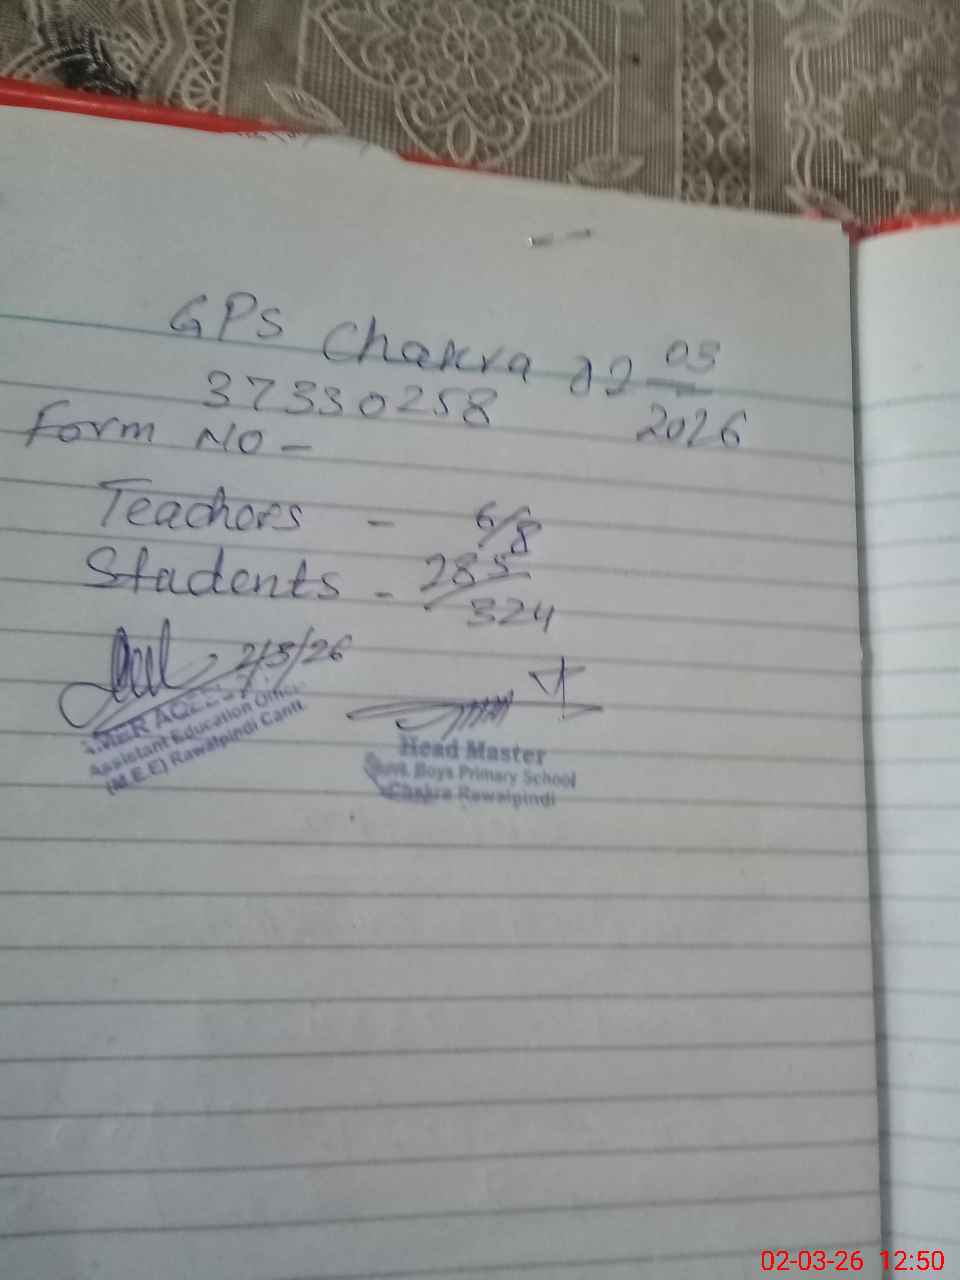 GPS Chakra 02 03
2026
37330258
Form No -
Teachers - 6/8
Students - 285/324
2/3/26
Assistant Education Officer
(M.E.E) Rawalpindi Cantt
Head Master
Govt. Boys Primary School
Chakra Rawalpindi
02-03-26 12:50